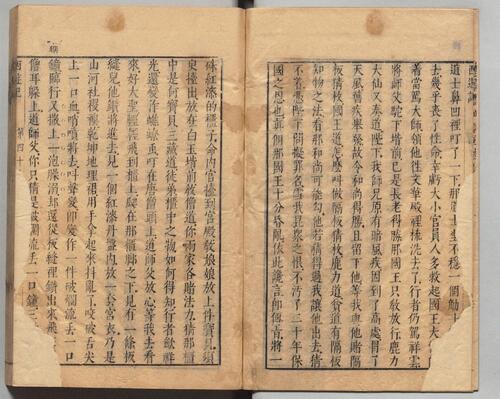 道士鼻凹裡叮了一下那道士坐不穩一個觔
去幾乎喪了性命幸虧大小官員人多救起國王大
着當駕大師領他往文華殿裡梳洗去了行者仍駕祥雲
將師父馱下堦前已是長老得勝那國王只教放行鹿力
大仙又奏道陛下我師兄原有暗風疾因到了高處冒了
天風舊疾舉發故令和尚得勝且留下他等我與他賭隔
板猜枚國王道怎麼叫做隔板猜枚鹿力道貧道有隔板
知物之法看那和尚可能勾他若猜得過我讓他出去猜
不着憑陛下問擬罪名雪我昆仲之恨不汚了二十年保
國之恩也眞個那國王十分昏亂依此讒言即傳旨將
硃紅漆的櫃子命內官擡到宮殿敎娘娘放上件寶貝須
臾擡出放在白玉堦前敎僧道你兩家各賭法力猜那櫃
中是何寶貝三藏道徒弟櫃中之物如何得知行者歛祥
光還變作蟭蟟虫叮在唐僧頭上道師父放心等我去看
看來好大聖輕輕飛到櫃上爬在那櫃脚之下見有一條板
縫兒他鑽將進去見一個紅漆丹盤內放一套宮衣乃是
山河社稷襖乾坤地理裙用手拿起來抖亂了咬破舌尖
上一口血哨噴將去叫聲變即變作一件破爛流丟一口
鐘臨行又撒上一泡臊溺却還從板縫裡鑽出來飛
僧耳朶上道師父你只猜是破爛流丟一口鐘三
西遊記
第四十